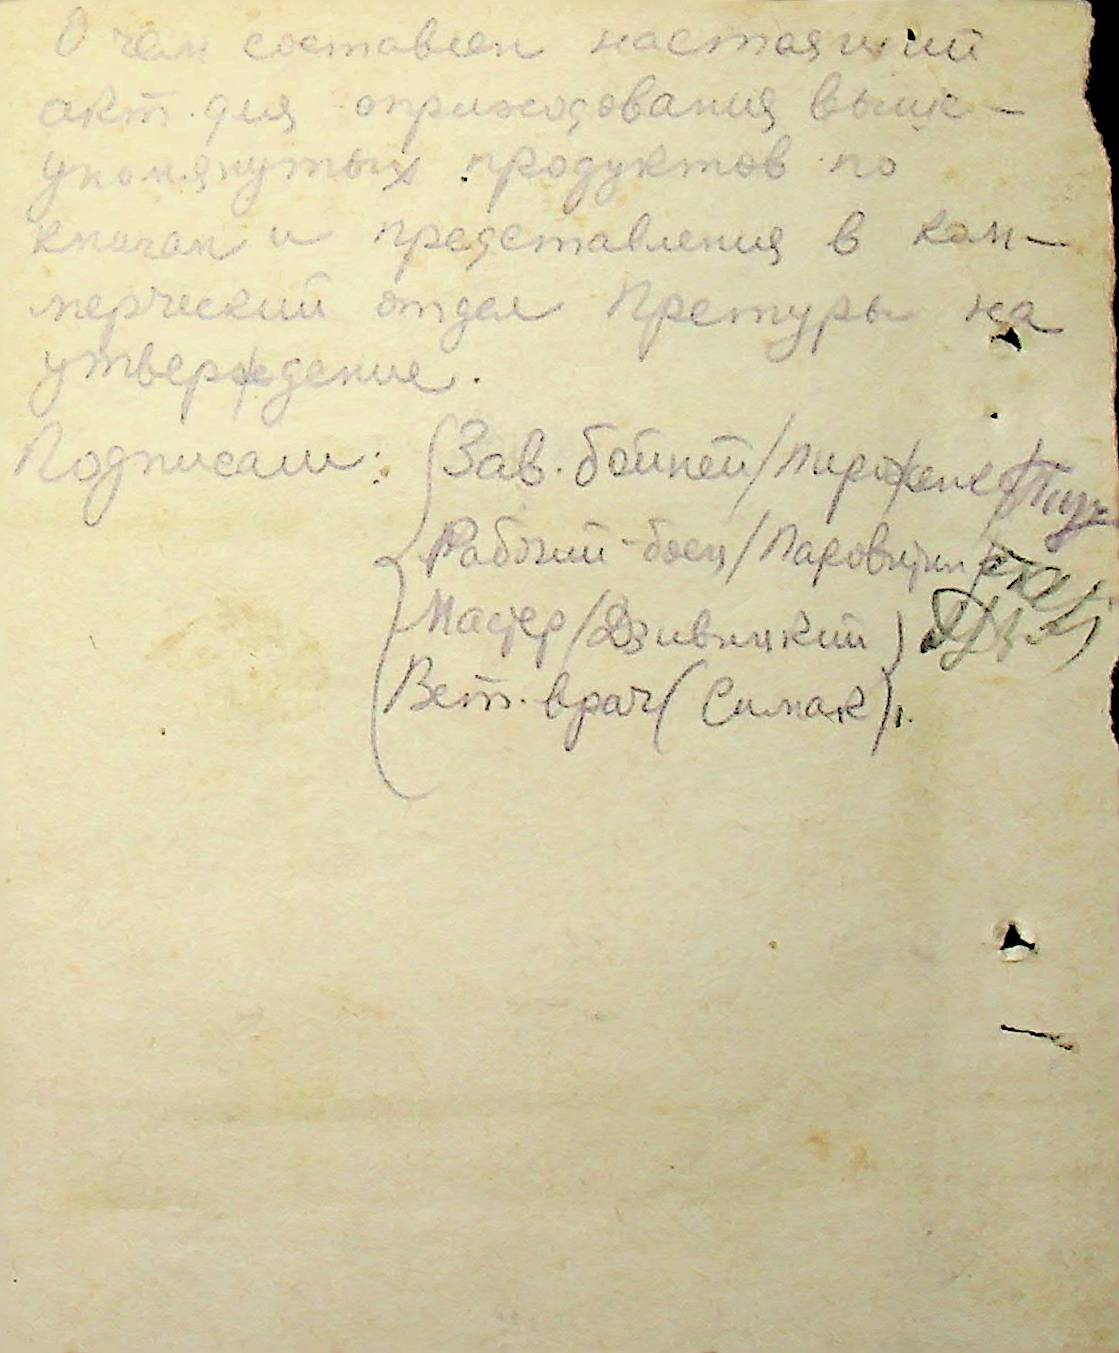 О чем составлен настоящий
акт для оприходования выше-
упомянутых продуктов по
книгам и представления в ком-
мерческий отдел Претуры на
утверждение.
Подписали: Зав. бойней /
Рабочий-боец /
Мастер /Дзивицкий)
Вет. врач (Симак).